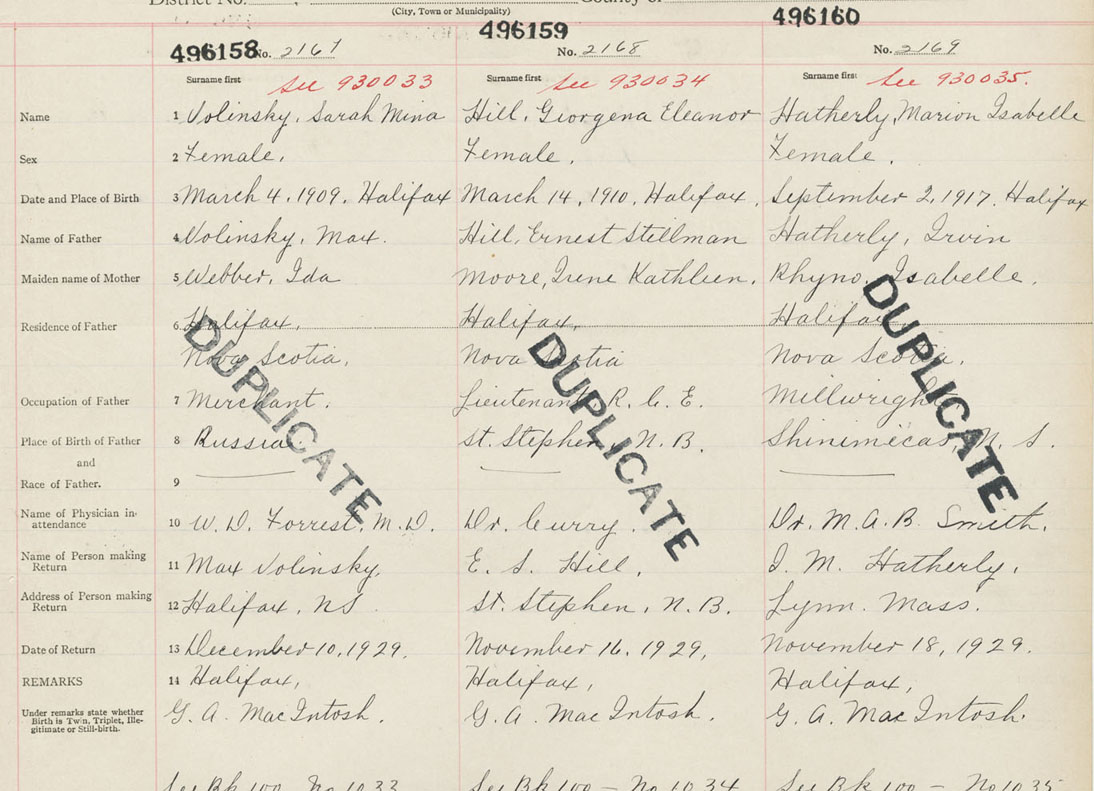 District No. , County of
(City, Town or Municipality)
496158 No. 2167 496159 No. 2168 496160 No. 2169
Surname first See 930033 Surname first See 930034 Surname first See 930035.
Name 1 Volinsky, Sarah Mina Hill, Giorgena Eleanor Hatherly, Marion Isabelle
Sex 2 Female. Female. Female.
Date and Place of Birth 3 March 4, 1909, Halifax March 14, 1910, Halifax, September 2, 1917, Halifax
Name of Father 4 Volinsky, Max. Hill, Ernest Stillman Hatherly, Irvin
Maiden name of Mother 5 Webber, Ida Moore, Irene Kathleen. Rhyno, Isabelle.
Residence of Father 6 Halifax, Halifax, Halifax,
Nova Scotia, Nova Scotia Nova Scotia.
Occupation of Father 7 Merchant. Lieutenant R. C. E. Millwright
Place of Birth of Father 8 Russia St. Stephen, N. B. Shinimicas, N. S.
and
Race of Father. 9
Name of Physician in attendance 10 W. D. Forrest, M. D. Dr. Curry. Dr. M. A. B. Smith.
Name of Person making Return 11 Max Volinsky, E. S. Hill, I. M. Hatherly.
Address of Person making Return 12 Halifax, NS. St. Stephen, N. B. Lynn. Mass.
Date of Return 13 December 10, 1929. November 16, 1929, November 18, 1929.
REMARKS 14 Halifax, Halifax, Halifax,
Under remarks state whether Birth is Twin, Triplet, Ille-
gitimate or Still-birth.
G. A. MacIntosh. G. A. MacIntosh. G. A. MacIntosh.
See Bk 100 No 1033 See Bk 100 – No 1034 See Bk 100 – No 1035
DUPLICATE DUPLICATE DUPLICATE